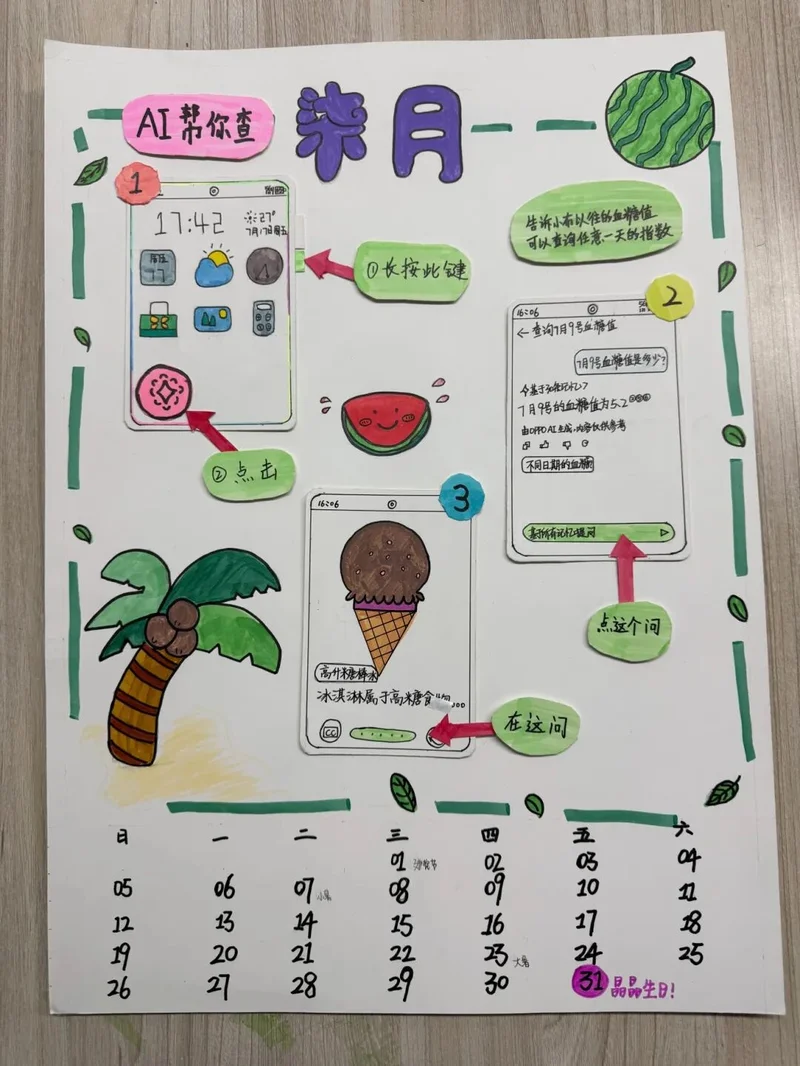 AI帮你查
柒月
1
17:42
27°
7月17日周五
17
①长按此键
②点击
告诉小布以往的血糖值
可以查询任意一天的指数
2
16:06
←查询7月9号血糖值
7月9号血糖值是多少?
7月9号的血糖值为5.2
由OPPO AI生成,内容仅供参考
不同日期的血糖
基于所有记忆提问
点这个问
3
16:06
冰淇淋属于高糖食物
CC
在这问
日 一 二 三 四 五 六
01 02 03 04
05 06 07 小暑 08 09 10 11
12 13 14 15 16 17 18
19 20 21 22 23 大暑 24 25
26 27 28 29 30 31 晶晶生日!